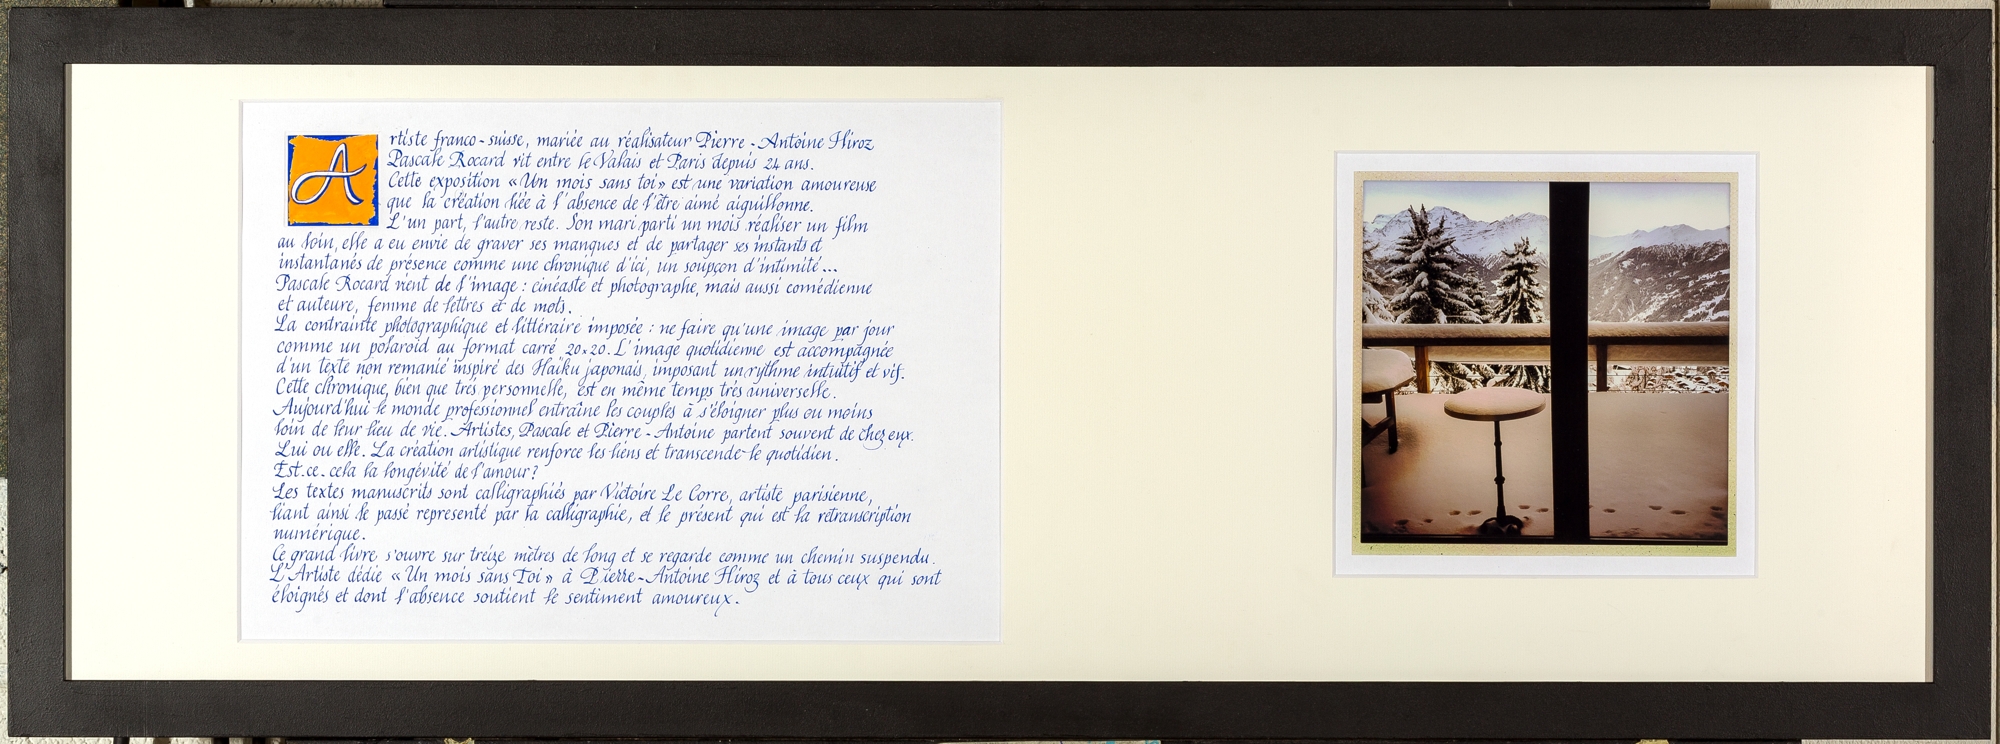 Artiste franco-suisse, mariée au réalisateur Pierre-Antoine Hiroz
Pascale Rocard vit entre le Valais et Paris depuis 24 ans.
Cette exposition « Un mois sans toi » est une variation amoureuse
que la création liée à l'absence de l'être aimé aiguillonne.
L'un part, l'autre reste. Son mari parti un mois réaliser un film
au loin, elle a eu envie de graver ses manques et de partager ses instants et
instantanés de présence comme une chronique d'ici, un soupçon d'intimité...
Pascale Rocard vient de l'image : cinéaste et photographe, mais aussi comédienne
et auteure, femme de lettres et de mots.
La contrainte photographique et littéraire imposée : ne faire qu'une image par jour
comme un polaroid au format carré 20x20. L'image quotidienne est accompagnée
d'un texte non remanié inspiré des Haïku japonais, imposant un rythme intuitif et vif.
Cette chronique, bien que très personnelle, est en même temps très universelle.
Aujourd'hui le monde professionnel entraîne les couples à s'éloigner plus ou moins
loin de leur lieu de vie. Artistes, Pascale et Pierre-Antoine partent souvent de chez eux.
Lui ou elle. La création artistique renforce les liens et transcende le quotidien.
Est.ce. cela la longévité de l'amour ?
Les textes manuscrits sont calligraphiés par Victoire Le Corre, artiste parisienne,
liant ainsi le passé representé par la calligraphie, et le présent qui est la retranscription
numérique.
Ce grand livre s'ouvre sur treize mètres de long et se regarde comme un chemin suspendu.
L'Artiste dédie « Un mois sans Toi » à Pierre-Antoine Hiroz et à tous ceux qui sont
éloignés et dont l'absence soutient le sentiment amoureux.